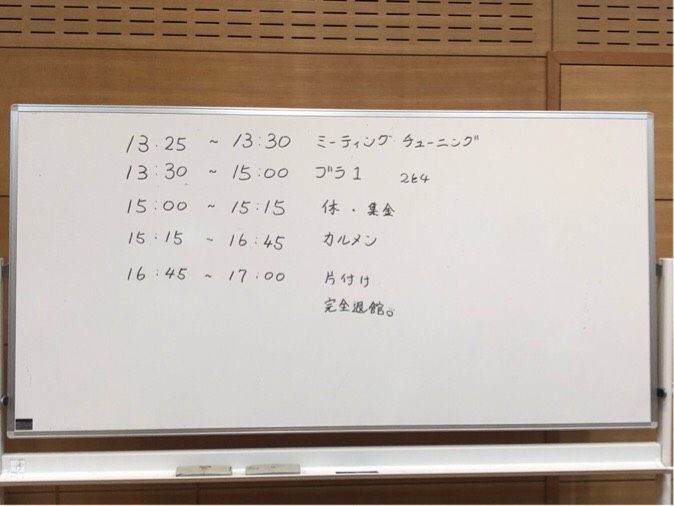 13:25 ~ 13:30 ミーティング・チューニング
13:30 ~ 15:00 ブラ1 2と4
15:00 ~ 15:15 休・集金
15:15 ~ 16:45 カルメン
16:45 ~ 17:00 片付け
完全退館。